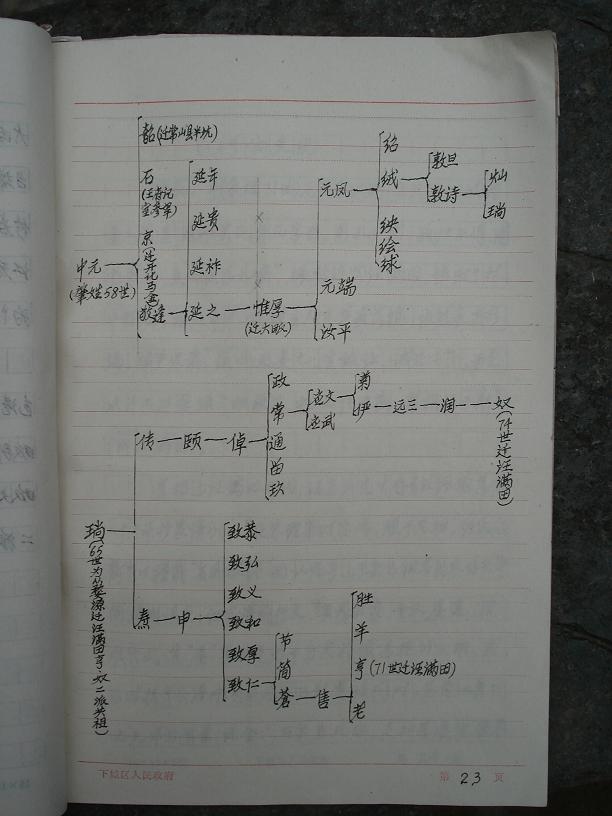 中元
(肇姓58世)
韶(迁常山县半坑)
石
京(迁开化马金)
毅達
延年
延贵
延祚
延之
惟厚
(迁大畈)
元凤
元端
汝平
绍
绒
绘
球
敦旦
敦诗
灿
瑞
瑞(65世为婺源迁汪满田亨、奴二派共祖)
传
颐
倬
政
常
通
玫
应文
应武
菊
伊
远三
润
奴(74世迁汪满田)
焘
申
致恭
致弘
致义
致和
致厚
致仁
节
简
售
胜
羊
亨(71世迁汪满田)
老
下城区人民政府
第 23 页